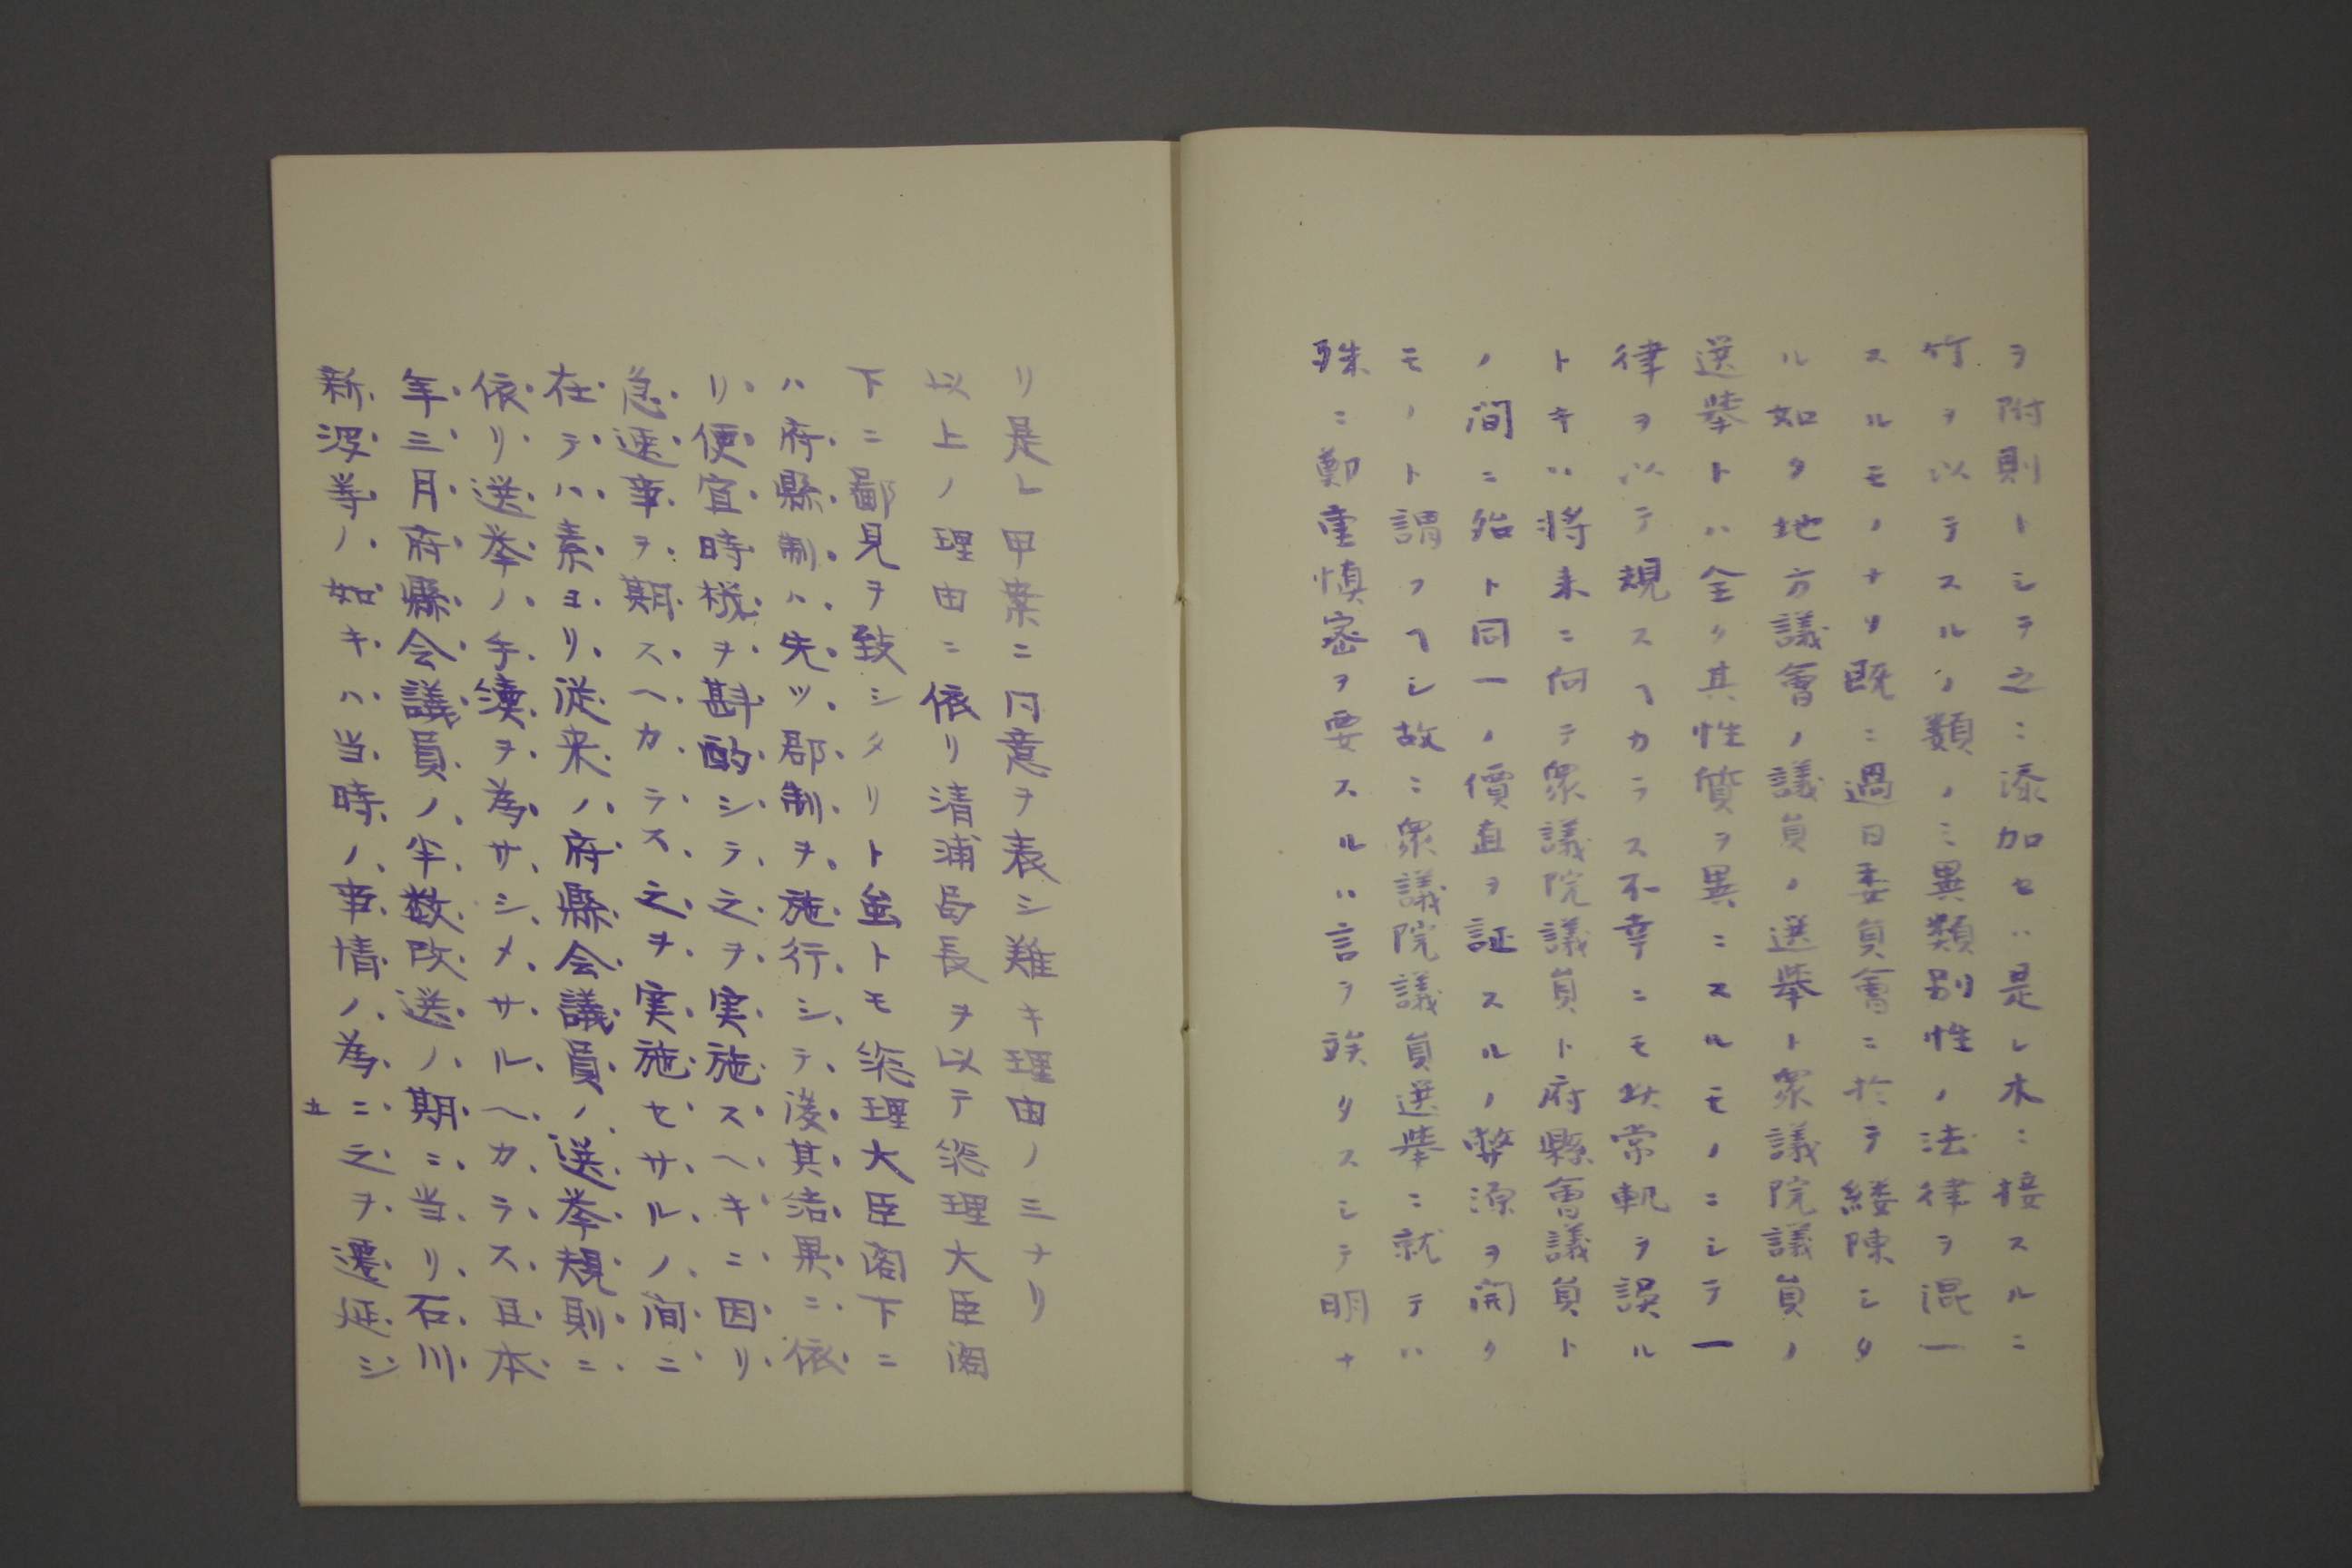 ヲ附則トシテ之ニ添加セハ是レ木ニ接スルニ
竹ヲ以テスルノ類ノミ異類別性ノ法律ヲ混一
スルモノナリ既ニ過日委員會ニ於テ縷陳シタ
ル如ク地方議會ノ議員ノ選挙ト衆議院議員ノ
選挙トハ全ク其性質ヲ異ニスルモノニシテ一
律ヲ以テ規スヘカラス不幸ニモ此常軌ヲ誤ル
トキハ将来ニ向テ衆議院議員ト府縣會議員ト
ノ間ニ殆ト同一ノ價直ヲ証スルノ弊源ヲ開ク
モノト謂フヘシ故ニ衆議院議員選挙ニ就テハ
殊ニ鄭重慎密ヲ要スルハ言ヲ竢タスシテ明ナ
リ是レ甲案ニ同意ヲ表シ難キ理由ノ三ナリ
以上ノ理由ニ依リ清浦局長ヲ以テ総理大臣閣
下ニ鄙見ヲ致シタリト虽トモ総理大臣閣下ニ
ハ府縣制ハ先ツ郡制ヲ施行シテ後其結果ニ依
リ便宜時機ヲ斟酌シテ之ヲ実施スヘキニ因リ
急速事ヲ期スヘカラス之ヲ実施セサルノ間ニ
在テハ素ヨリ従来ノ府縣会議員ノ選挙規則ニ
依リ選挙ノ手續ヲ為サシメサルヘカラス且本
年三月府縣会議員ノ半数改選ノ期ニ当リ石川
新潟等ノ如キハ当時ノ事情ノ為ニ之ヲ遷延シ
五